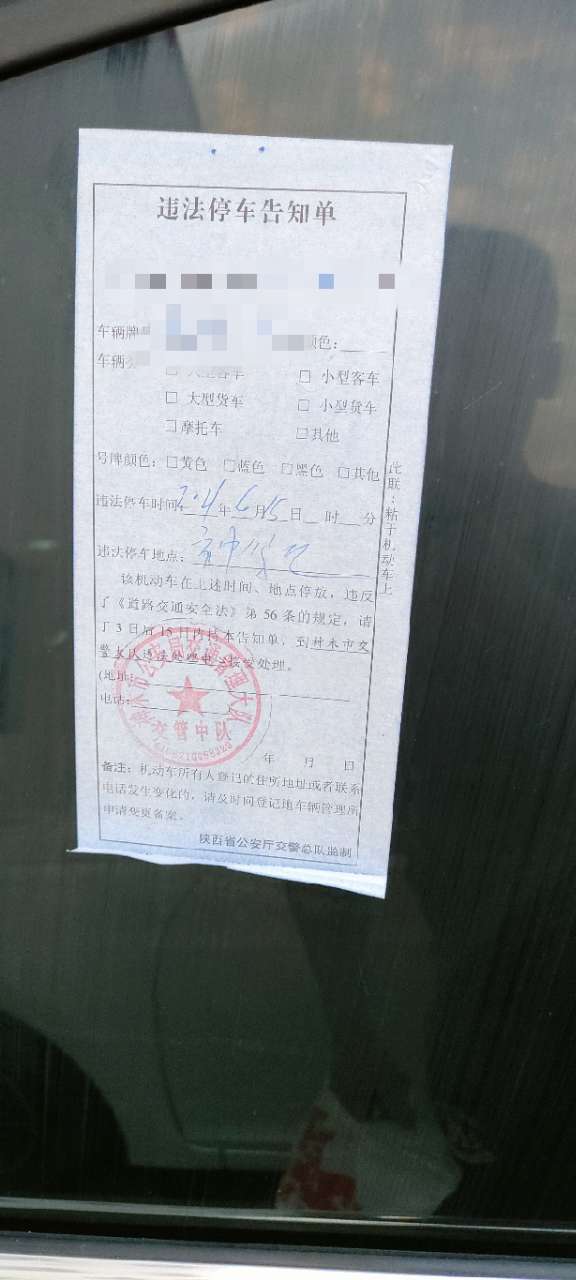 违法停车告知单
车辆牌
颜色:
车辆
大型客车 □ 小型客车
□ 大型货车 □ 小型货车
□ 摩托车 □ 其他
号牌颜色: □黄色 □蓝色 □黑色 □其他
违法停车时间: 年6月15日 时 分
违法停车地点:
该机动车在上述时间、地点停放,违反
了《道路交通安全法》第 56 条的规定,请
于 3 日后 15 日内持本告知单,到神木市交
警大队违法处理中心接受处理。
(地址:
电话:
年 月 日
备注: 机动车所有人登记的住所地址或者联系
电话发生变化的,请及时向登记地车辆管理所
申请变更备案。
陕西省公安厅交警总队监制
此联:粘于机动车上
神木市公安局交通管理大队
交管中队